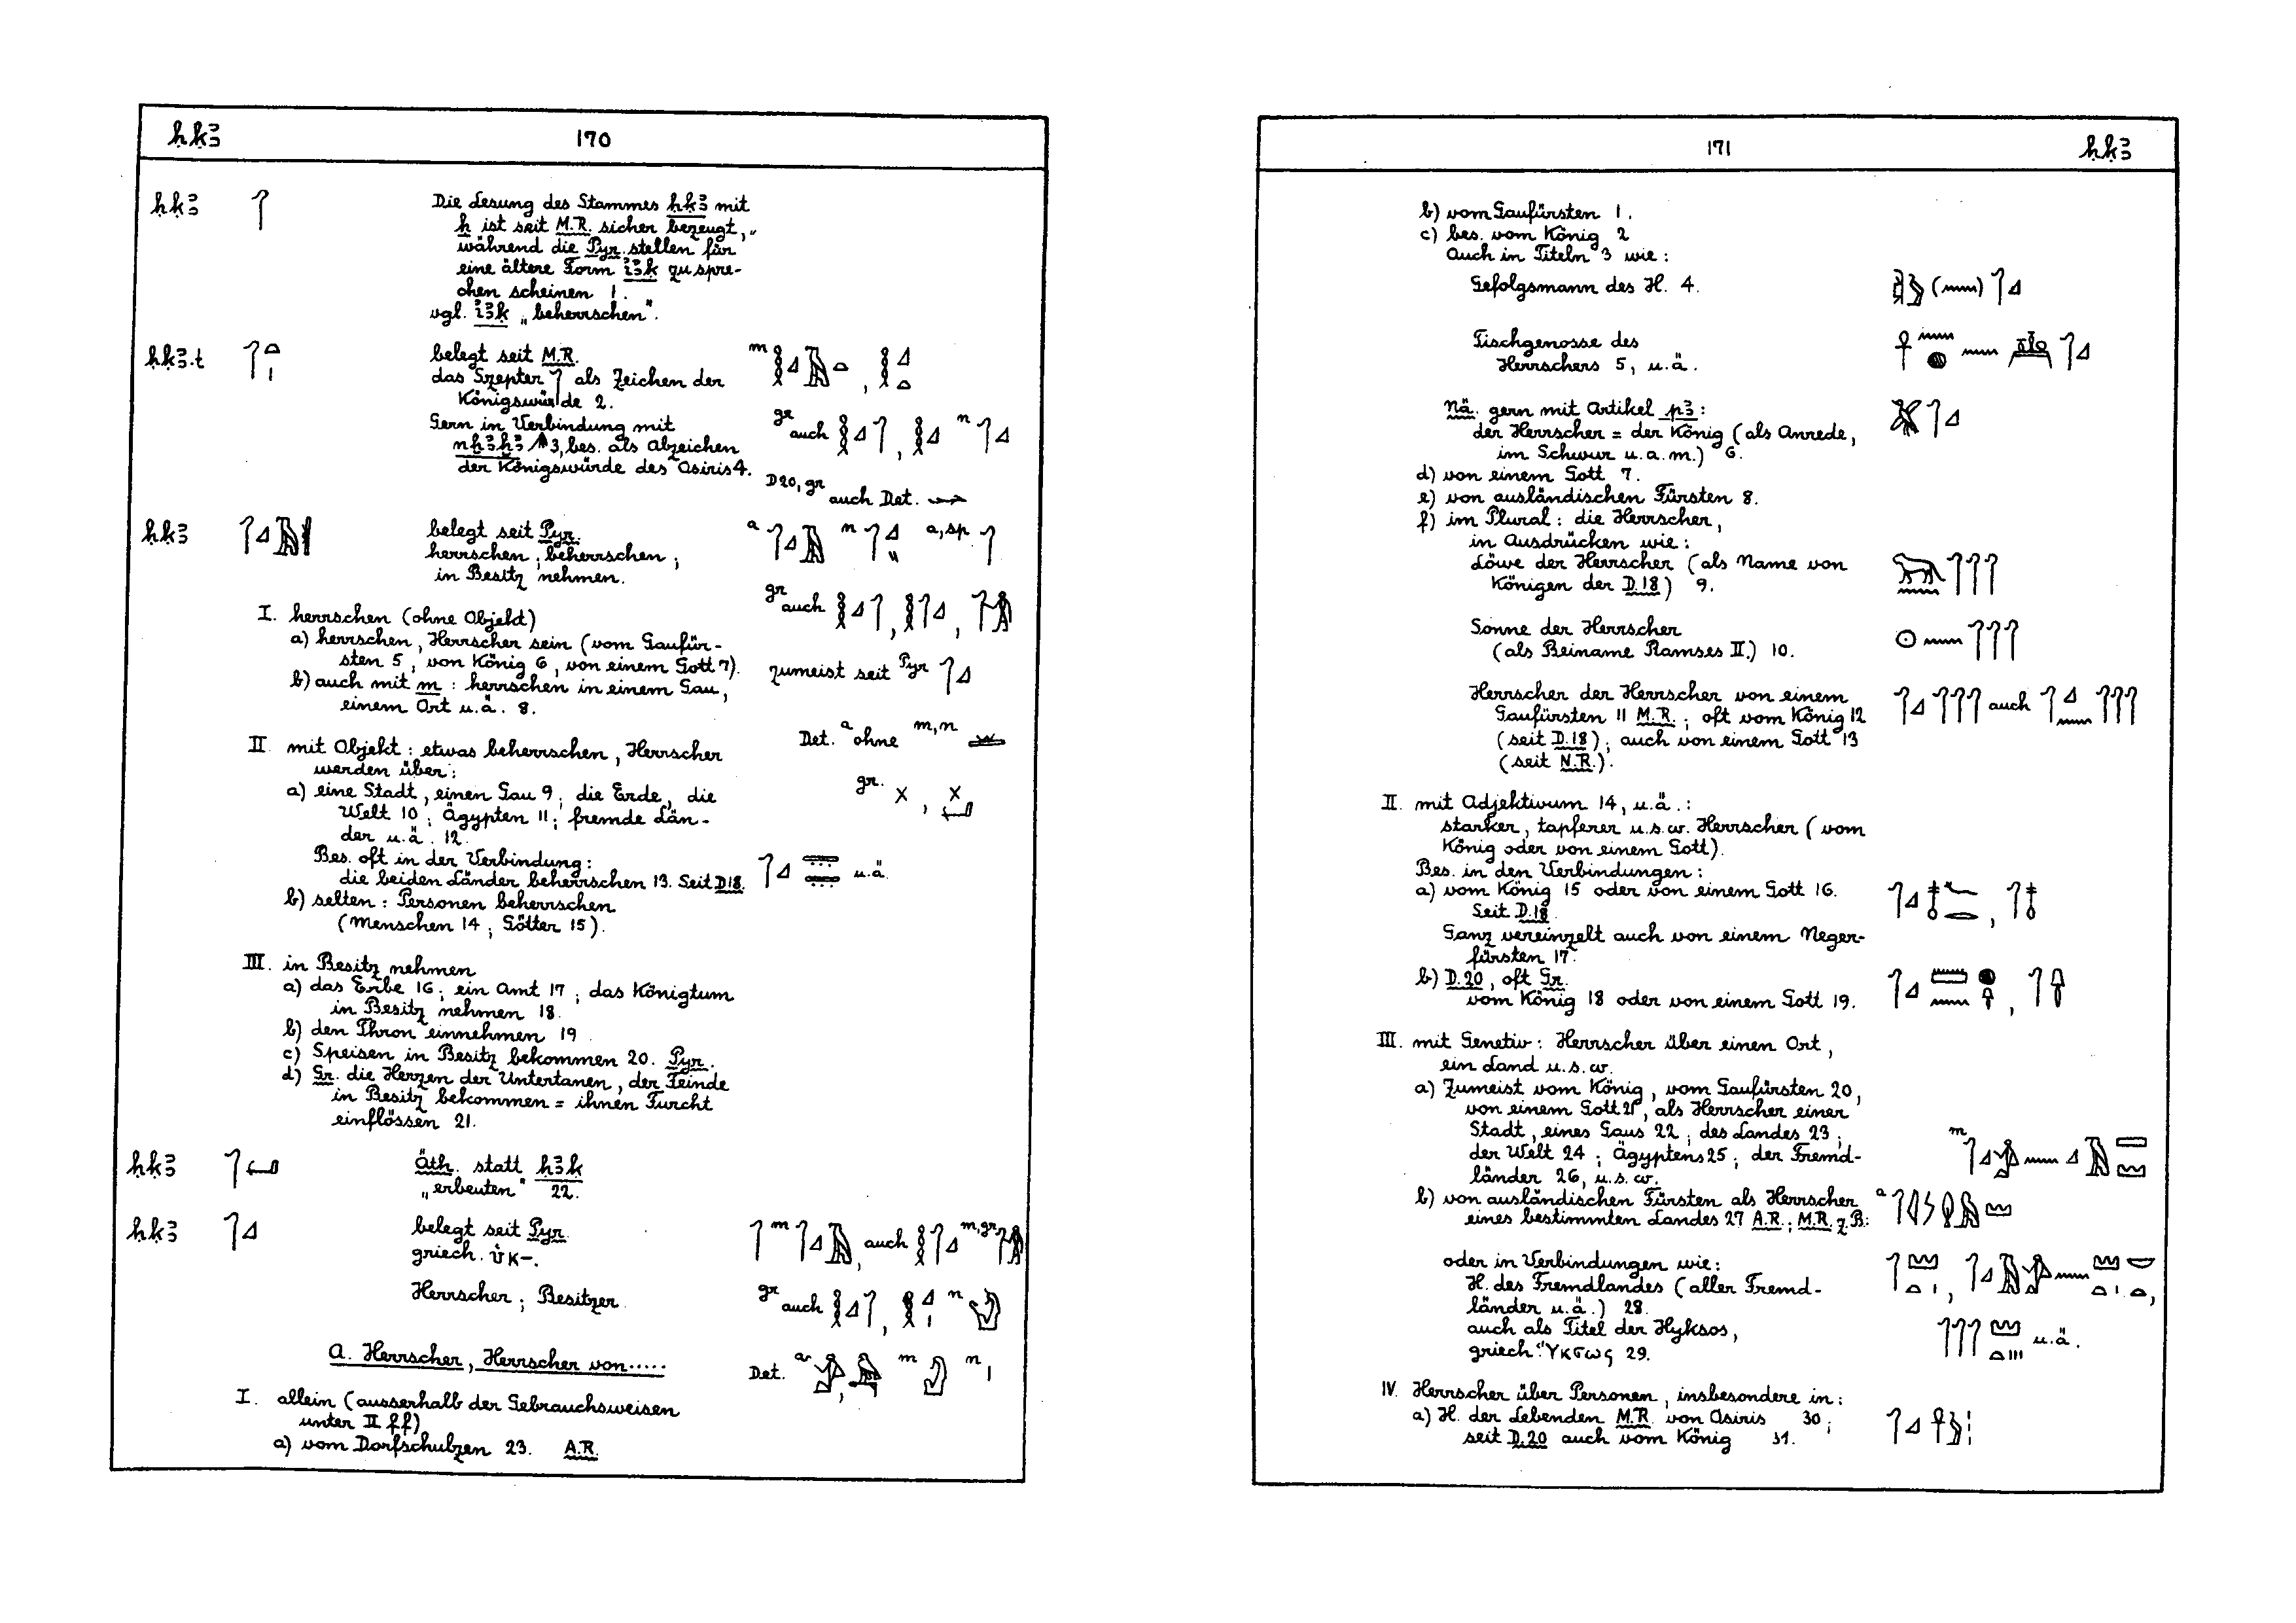 ḥḳꜣ 170
ḥḳꜣ Die Lesung des Stammes ḥḳꜣ mit
ḥ ist seit M.R. sicher bezeugt,
während die Pyr. stellen für
eine ältere Form iꜣḳ zu spre-
chen scheinen 1.
vgl. iꜣḳ „beherrschen".
ḥḳꜣ.t belegt seit M.R.
das Szepter 𓋾 als Zeichen der
Königswürde 2.
Gern in Verbindung mit
nḫꜣḫꜣ 𓌅 3, bes. als Abzeichen
der Königswürde des Osiris 4.
m
gr auch n
D20, gr auch Det.
ḥḳꜣ belegt seit Pyr.
herrschen; beherrschen;
in Besitz nehmen.
a n a, sp.
gr auch
zumeist seit Pyr
Det. a ohne m, n
gr.
I. herrschen (ohne Objekt)
a) herrschen, Herrscher sein (vom Gaufür-
sten 5, von König 6, von einem Gott 7).
b) auch mit m : herrschen in einem Gau,
einem Ort u.ä. 8.
II. mit Objekt : etwas beherrschen, Herrscher
werden über :
a) eine Stadt, einen Gau 9; die Erde, die
Welt 10; Ägypten 11; fremde Län-
der u.ä. 12.
Bes. oft in der Verbindung:
die beiden Länder beherrschen 13. Seit D18. 𓋾𓈎 u.ä.
b) selten : Personen beherrschen
(Menschen 14; Götter 15).
III. in Besitz nehmen
a) das Erbe 16; ein Amt 17; das Königtum
in Besitz nehmen 18.
b) den Thron einnehmen 19
c) Speisen in Besitz bekommen 20. Pyr.
d) Gr. die Herzen der Untertanen, der Feinde
in Besitz bekommen = ihnen Furcht
einflössen 21.
ḥḳꜣ Äth. statt ḥꜣḳ
„erbeuten" 22.
ḥḳꜣ 𓋾𓈎 belegt seit Pyr.
griech. ὑκ-.
Herrscher; Besitzer.
m auch m, gr
gr auch n
Det. a m n
A. Herrscher, Herrscher von.....
I. allein (ausserhalb der Gebrauchsweisen
unter II ff)
a) vom Dorfschulzen 23. A.R.
171 ḥḳꜣ
b) vom Gaufürsten 1.
c) bes. vom König 2
Auch in Titeln 3 wie :
Gefolgsmann des H. 4.
Tischgenosse des
Herrschers 5, u.ä.
Nä. gern mit Artikel pꜣ :
der Herrscher = der König (als Anrede,
im Schwur u.a.m.) 6.
d) von einem Gott 7.
e) von ausländischen Fürsten 8.
f) im Plural : die Herrscher,
in Ausdrücken wie :
Löwe der Herrscher (als Name von
Königen der D.18) 9.
Sonne der Herrscher
(als Beiname Ramses II.) 10. 𓇳𓈖𓋾𓋾𓋾
Herrscher der Herrscher von einem 𓋾𓈎𓋾𓋾𓋾 auch 𓋾𓈎𓈖𓋾𓋾𓋾
Gaufürsten 11 M.R.; oft vom König 12
(seit D.18); auch von einem Gott 13
(seit N.R.).
II. mit Adjektivum 14, u.ä. :
starker, tapferer u.s.w. Herrscher (vom
König oder von einem Gott).
Bes. in den Verbindungen :
a) vom König 15 oder von einem Gott 16.
Seit D.18.
Ganz vereinzelt auch von einem Neger-
fürsten 17.
b) D.20, oft Gr.
vom König 18 oder von einem Gott 19.
III. mit Genetiv : Herrscher über einen Ort,
ein Land u.s.w.
a) Zumeist vom König, vom Gaufürsten 20,
von einem Gott 21, als Herrscher einer
Stadt, eines Gaus 22; des Landes 23;
der Welt 24; Ägyptens 25; der Fremd-
länder 26, u.s.w.
m
b) von ausländischen Fürsten als Herrscher a
eines bestimmten Landes 27 A.R.; M.R. z.B:
oder in Verbindungen wie :
H. des Fremdlandes (aller Fremd-
länder u.ä.) 28.
auch als Titel der Hyksos, u.ä.
griech. Ὑκσως 29.
IV. Herrscher über Personen, insbesondere in :
a) H. der Lebenden M.R. von Osiris 30;
seit D.20 auch vom König 31.